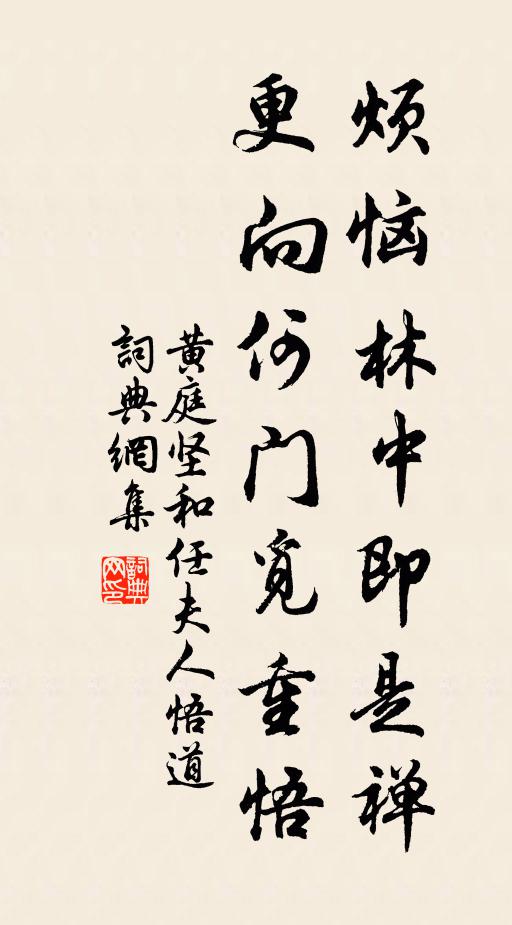 烦恼林中即是禅
更向何门觅重悟
黄庭坚和任夫人悟道
詞典網集
詞典网印